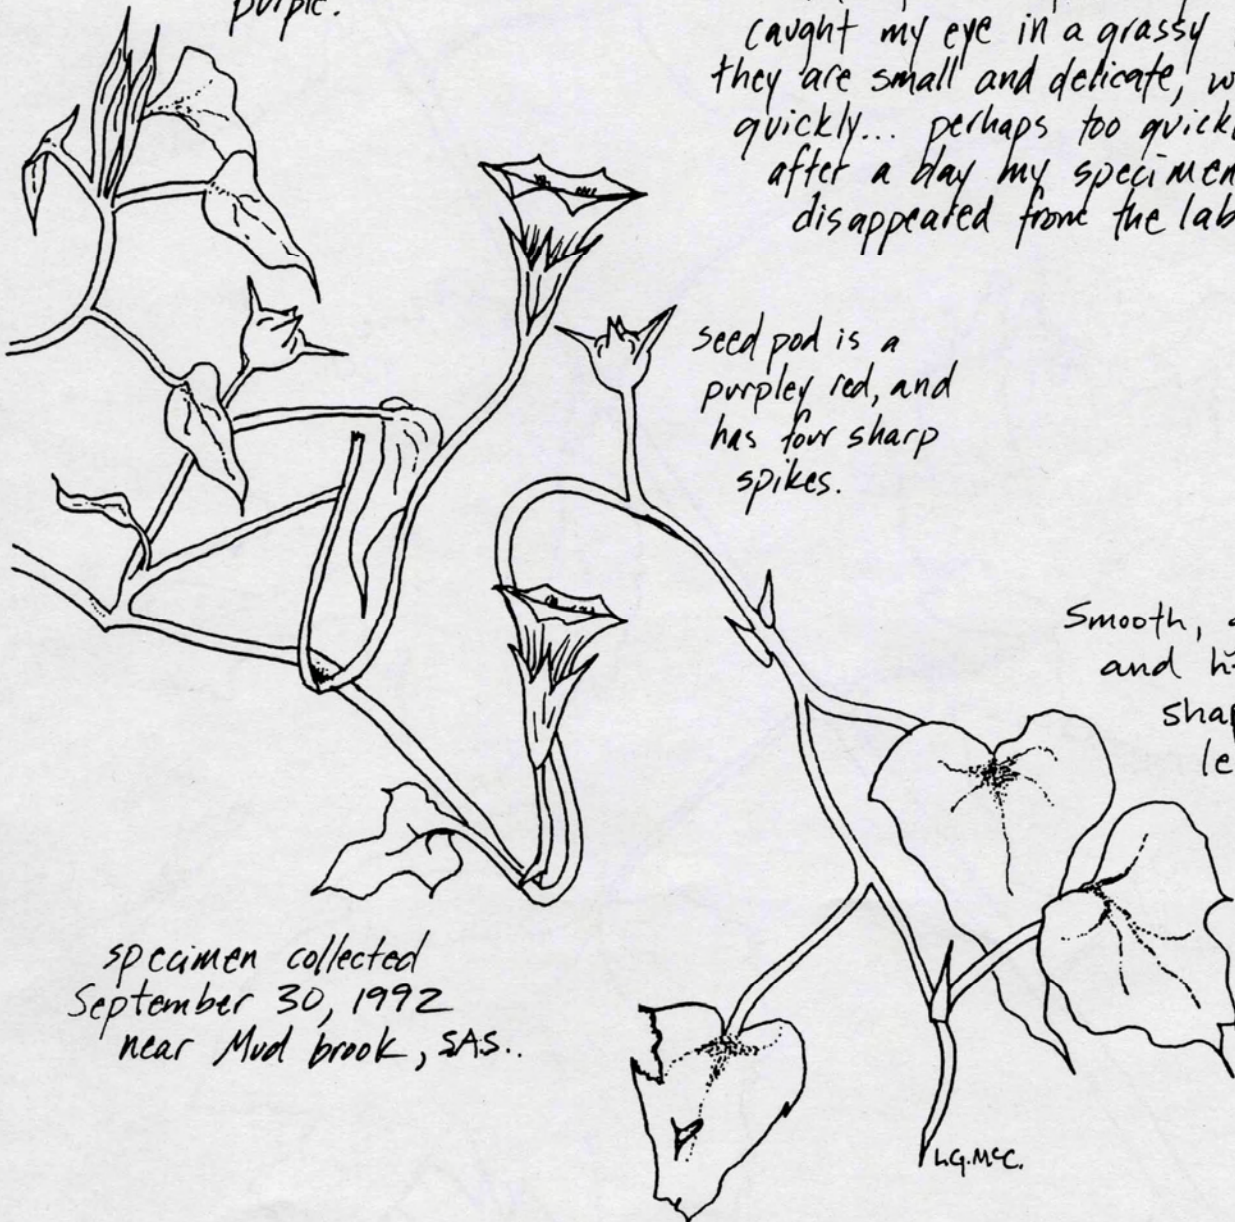 purple.
caught my eye in a grassy
they are small and delicate,
quickly... perhaps too
after a day my specimen
disappeared from the lab
seed pod is a
purpley red, and
has four sharp
spikes.
Smooth,
and
specimen collected
September 30, 1992
near Mud brook, SAS..
L.G.McC.